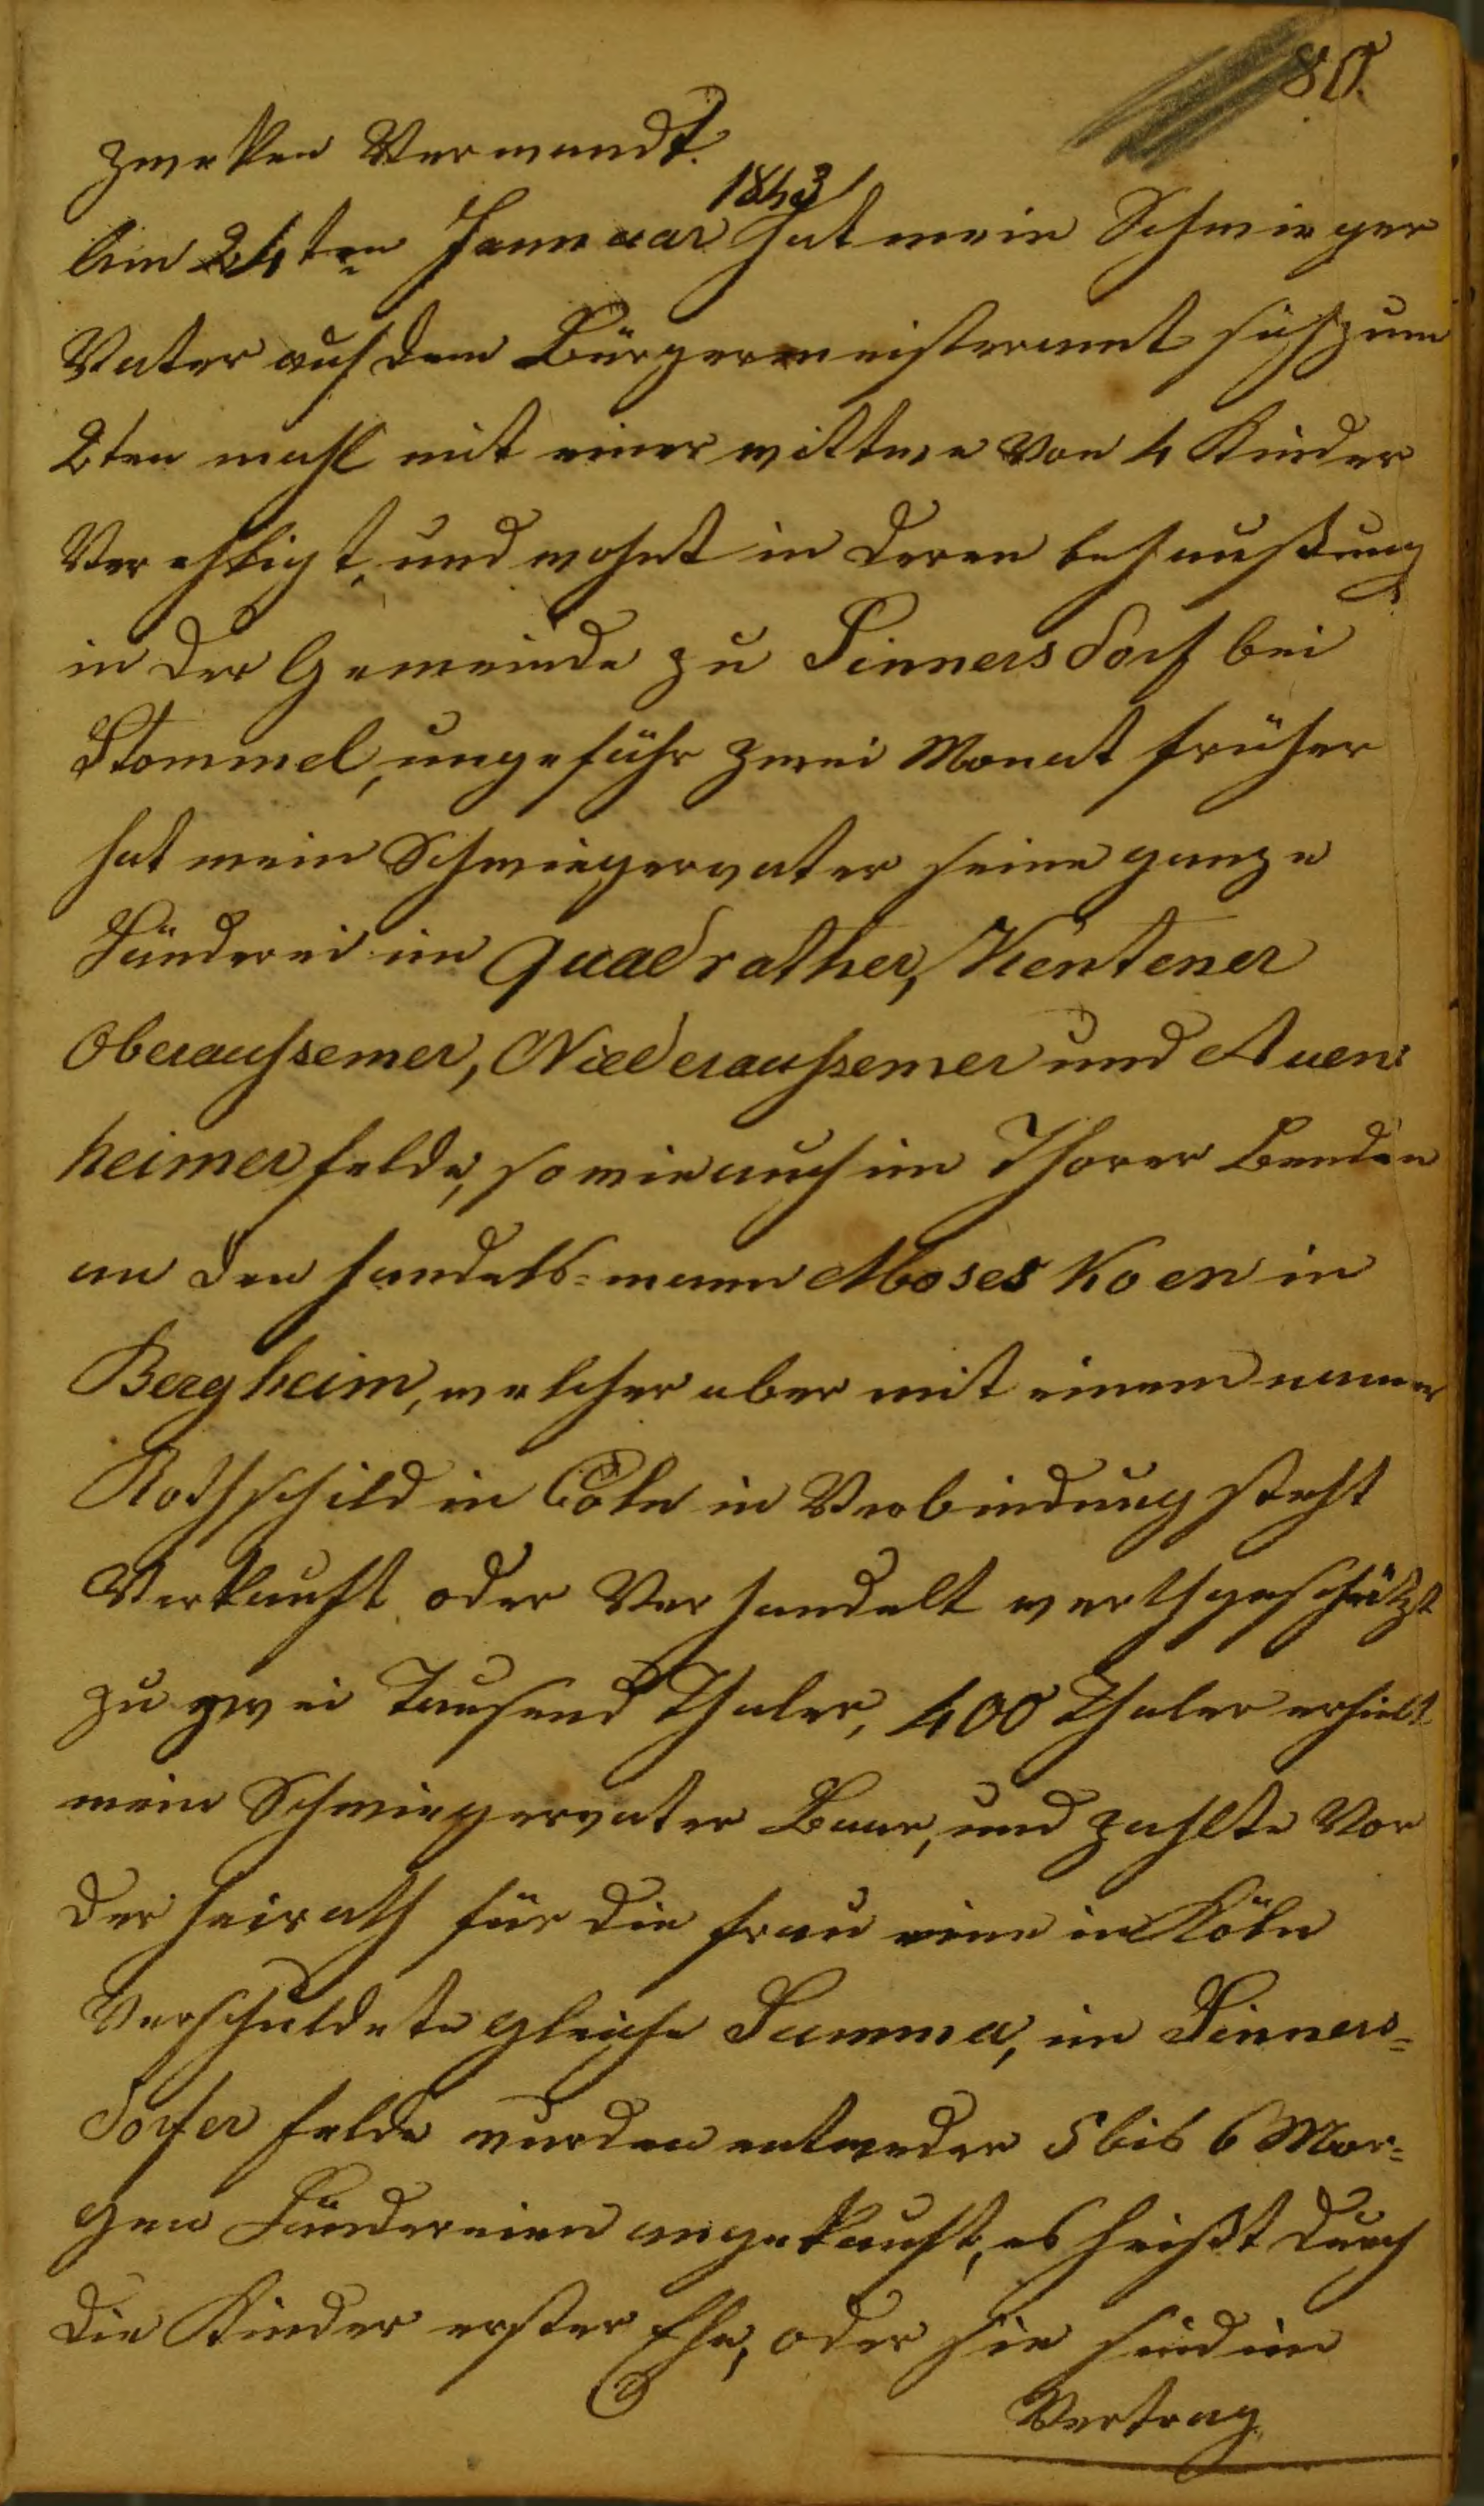 80.
zwekken Verwandt.
Am 24ten Jannuar 1843 hat mein Schwieger
Vater auf dem Bürgermeisteramt sich zum
2ten mahl mit einer wittwe von 4 Kinder
Verehligt, und wohnt in deren behaußung
in der Gemeinde zu Sinnersdorf bei
Stommel, ungefähr zwei Monat früher
hat mein Schwiegervater seine ganze
Länderei im Quadrather, Kentener
Oberaussemer, Niederaussemer und Auen:
heimer felde, so wie auch im Thorer Benden
an den handels=mann Moses Koen in
Bergheim, welcher aber mit einem namens
Rothschild in Cöln in Verbindung steht
Verkauft oder Verhandelt werthgeschätzt
zu zwei Tausend Thaler, 400 Thaler erhielt
mein Schwiegervater Baar, und zahlte Vor
der heirath für die frau eine in Köln
Verschuldete gleiche Summa, im Sinners=
dorfer felde wurden entweder 5 bis 6 Mor=
gen Ländereien angekauft, es heißt durch
die Kinder erster Ehe, oder sie sind im
Vertrag